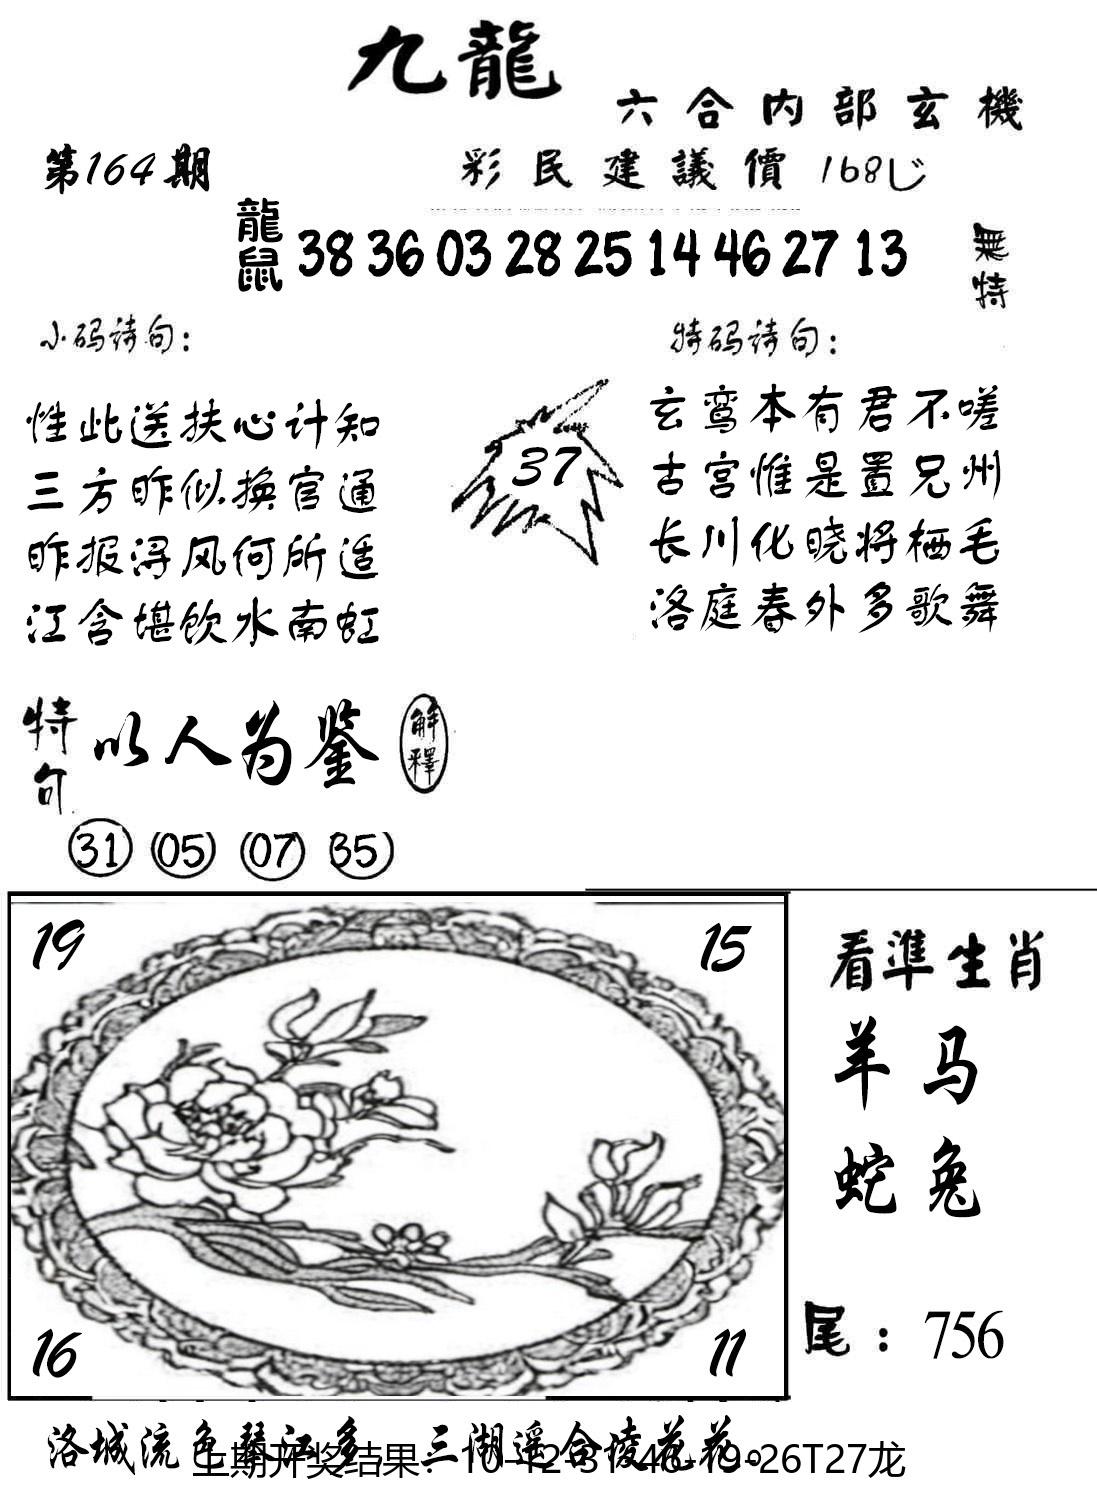 九龍
六合内部玄機
第164期
彩民建議價 168
龍鼠 38 36 03 28 25 14 46 27 13 無特
小码诗句：
特码诗句：
性此送扶心计知
三方昨似换官通
昨报浔风何所适
江含堪饮水南虹
37
玄鸾本有君不嗟
古宫惟是置兄州
长川化晓将栖毛
洛庭春外多歌舞
特句 以人为鉴 解釋
31 05 07 35
19 15
16 11
看準生肖
羊马
蛇兔
尾：756
洛城流色琴江多 三湖遥合凌花花。
上期开奖结果：10-12-31-46-19-26T27龙